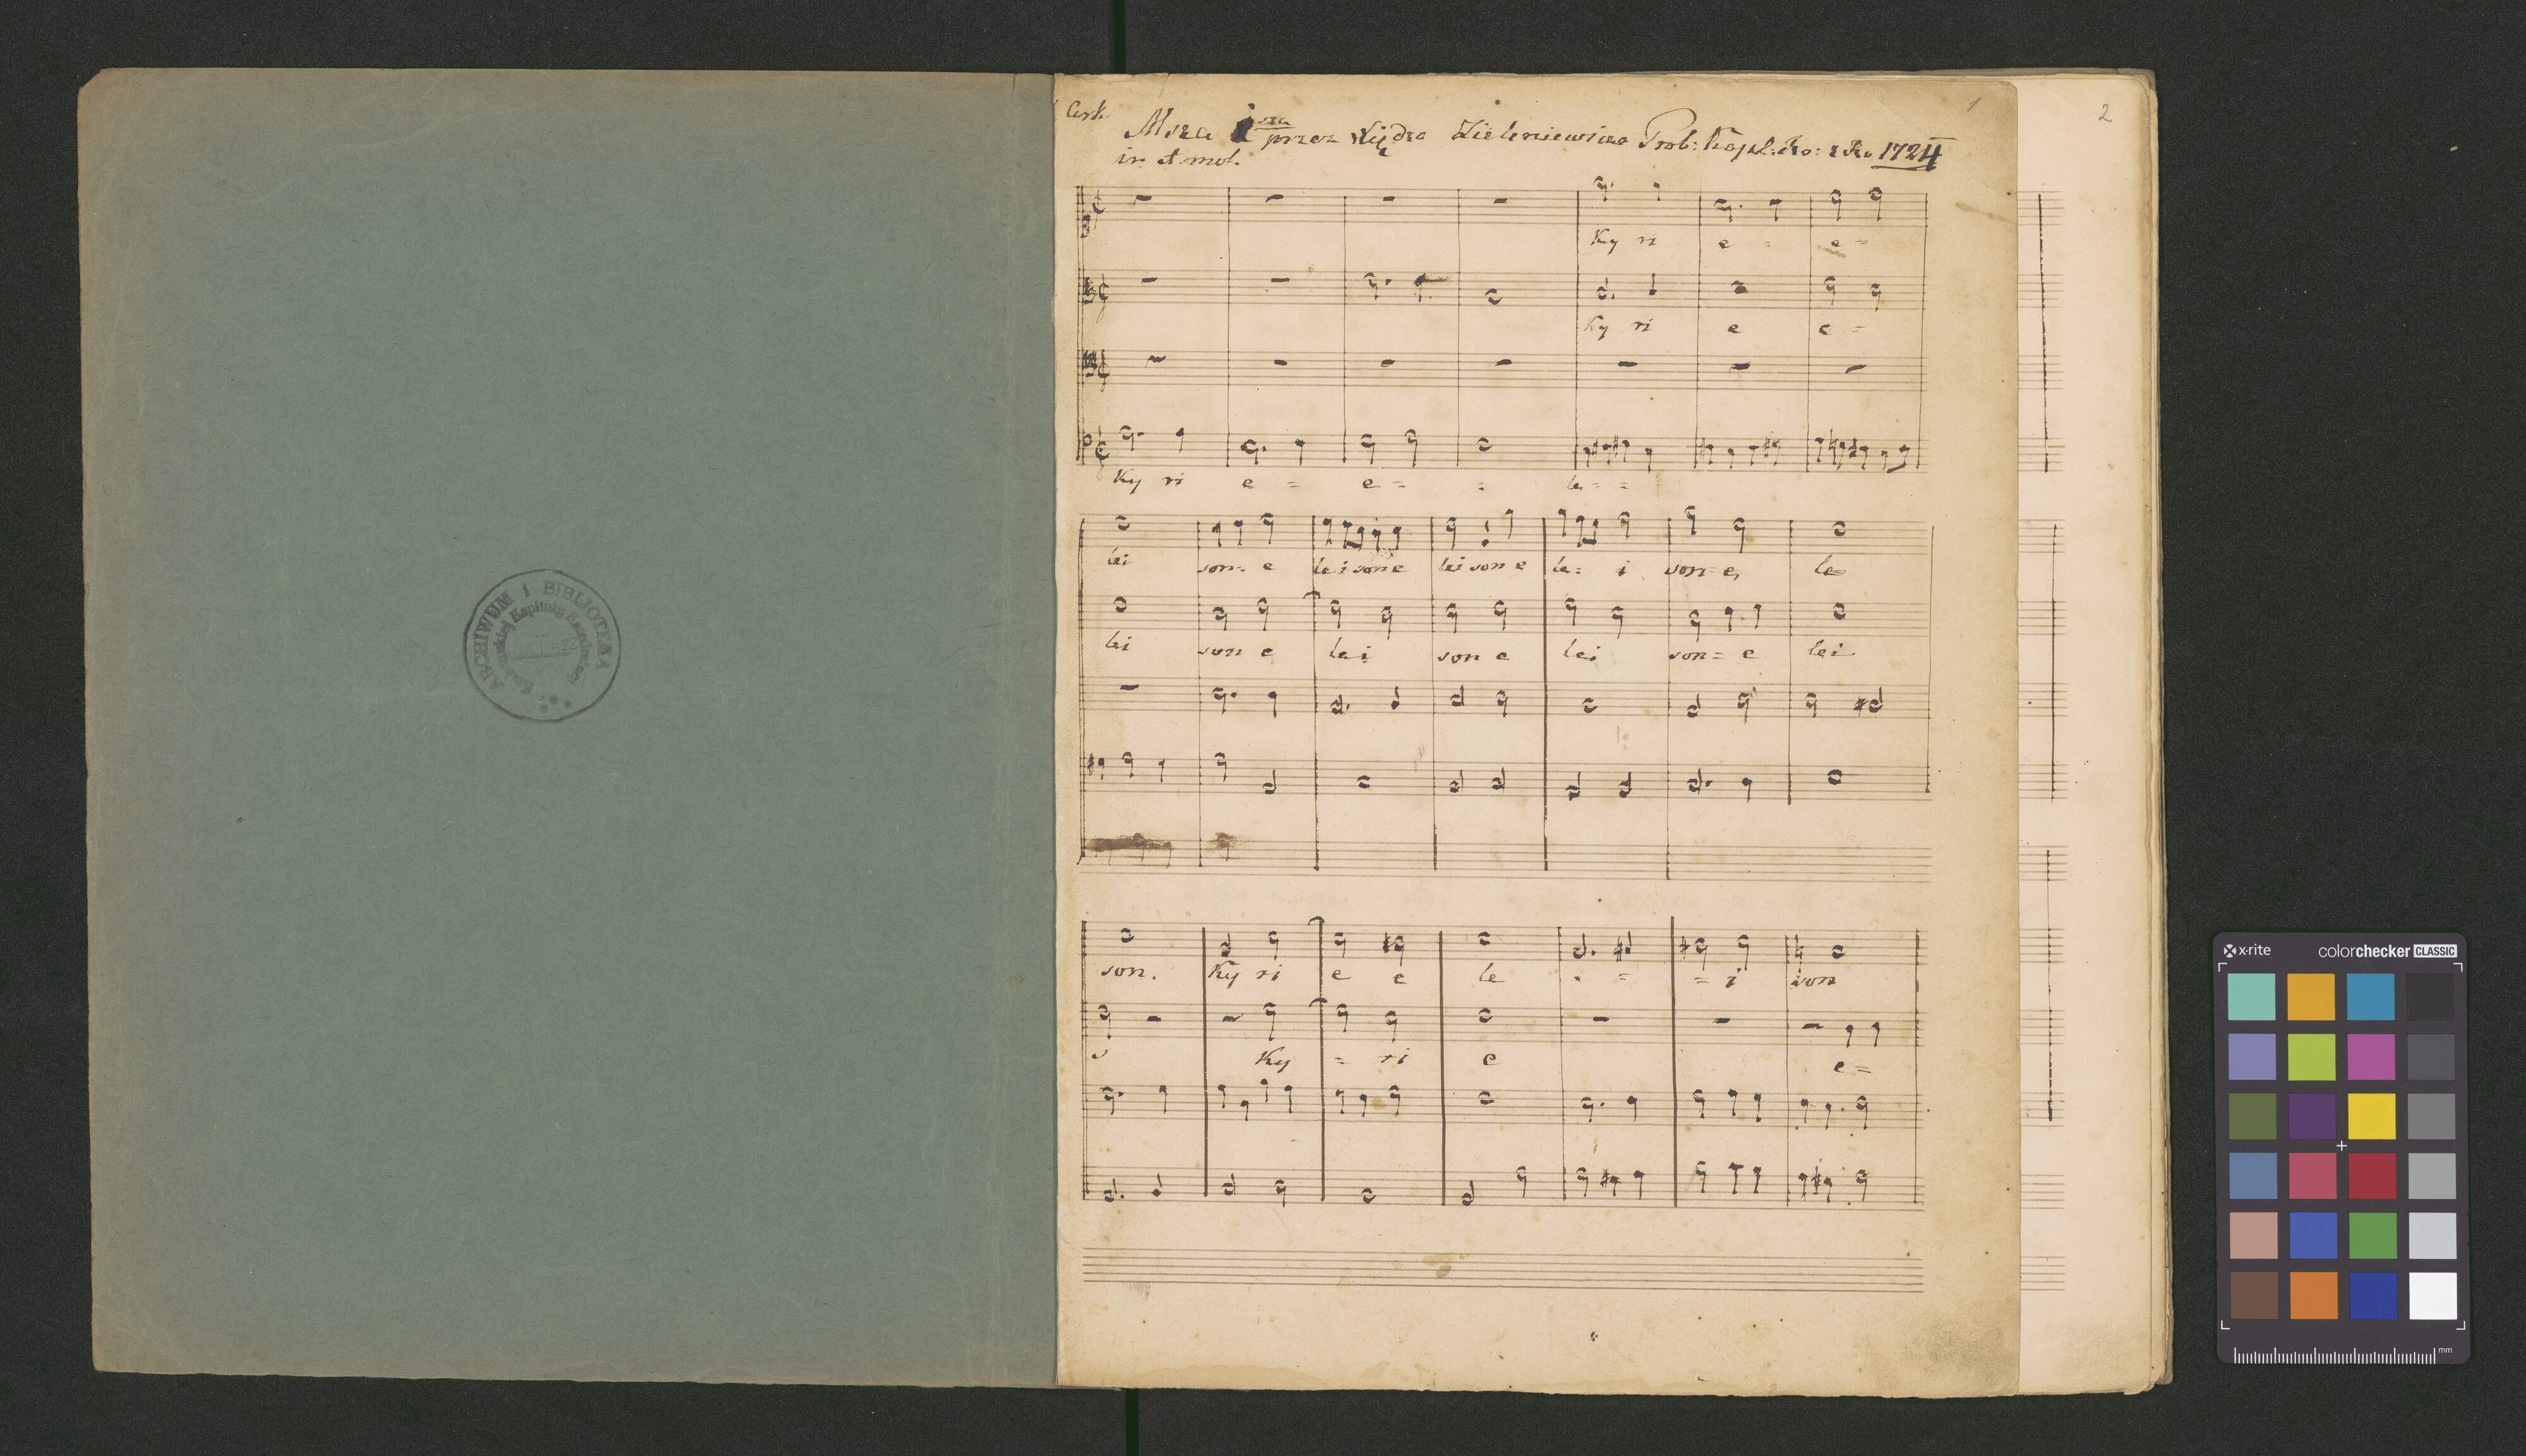 ARCHIWUM i BIBLIOTEKA
Krakowskiej Kapituły Katedralnej
1
2
Msza 1 sza przez Xiędza Zieleniewicza Prob: Kapl: Ro: z Ro 1724
in A mol.
Ky ri e = e =
Ky ri e e =
Ky ri e = e = = le = =
lei son = e lei son e lei son e le = i son e, le
lei son e lei son e lei son = e lei
son. Ky ri e e le = = = i son
Ky = ri e e =
x-rite colorchecker CLASSIC
mm